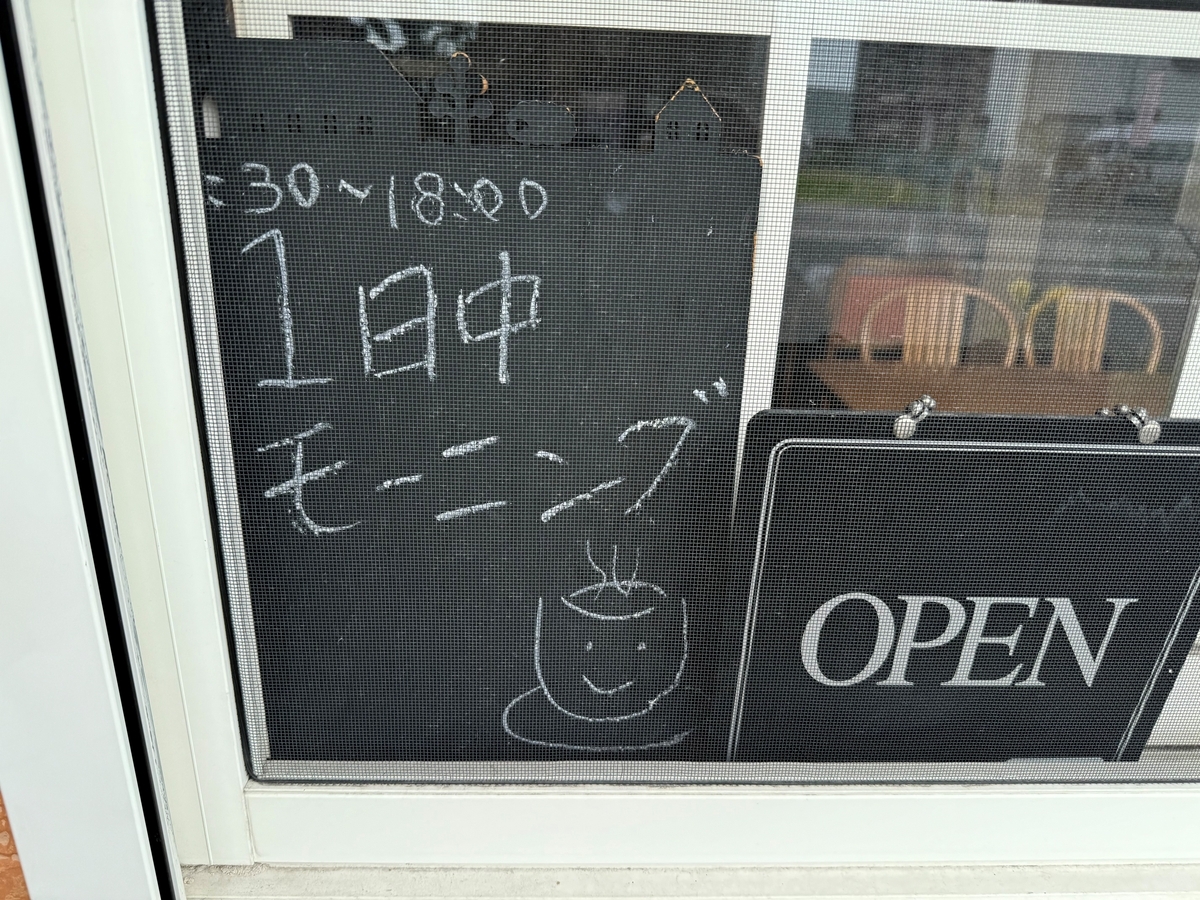 :30~18:00
1日中
モーニング
OPEN